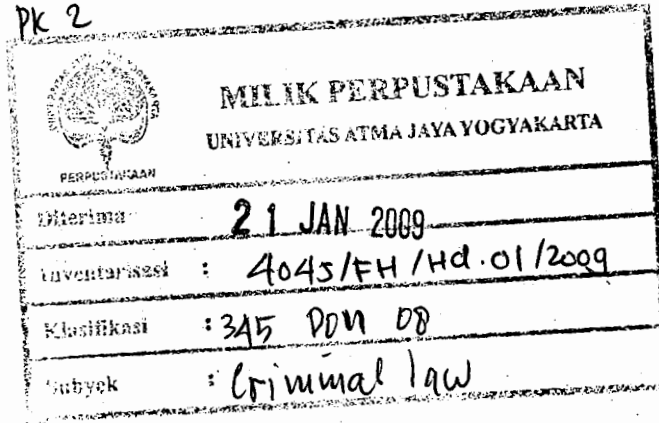 PK 2
MILIK PERPUSTAKAAN
UNIVERSITAS ATMA JAYA YOGYAKARTA
PERPUSTAKAAN
Diterima 21 JAN 2009
Inventarisasi : 4045/FH/Hd.01/2009
Klasifikasi : 345 DON 08
Subyek : Criminal law